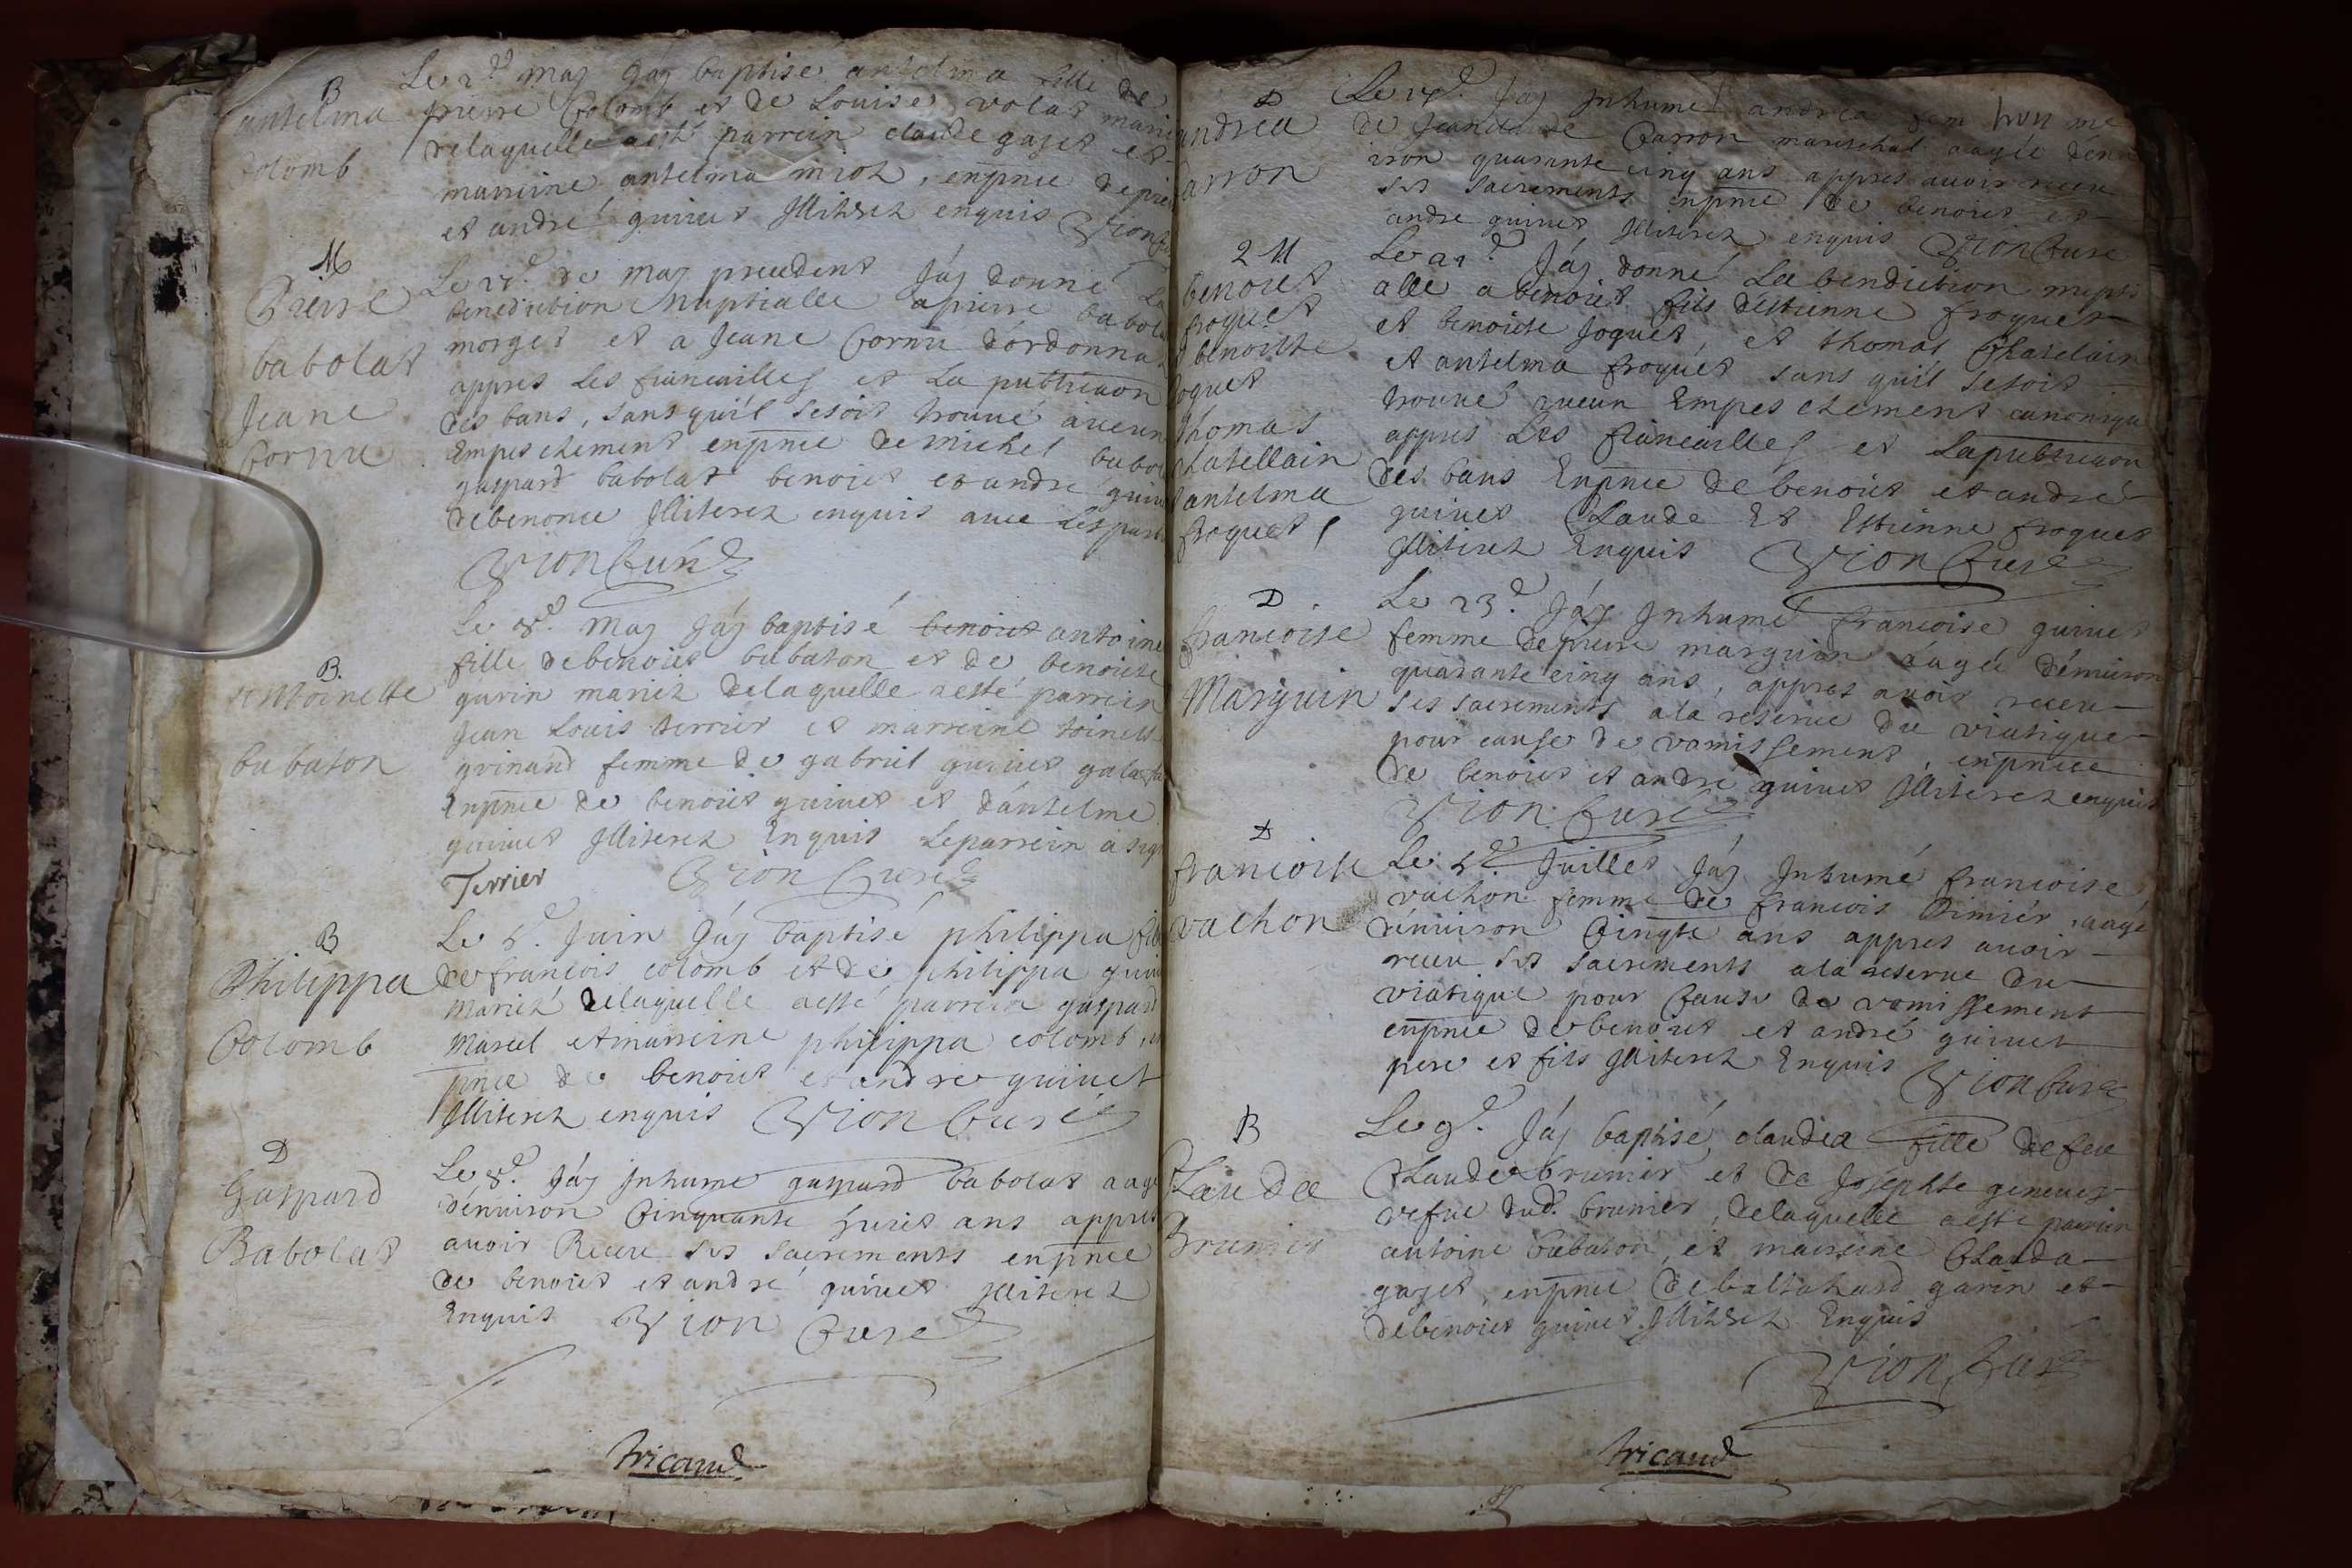 B
antelma
Colomb
Le 2d may Jáy baptisé antelma fille de
pierre Colomb et de Louise volat
delaquelle a esté parrein claude gajet et
marreine antelma , enpnce de
et andré guiuet Jlliterez enquis Vion
M
Pierre
babolat
Jeane
Cornu
Le de may precedent Jáy donné La
benediction Nuptialle a pierre
morget et a Jeane Cornu d'ordonna
appres Les fiancailles et La publicaon
des bans, sans quil sesoit trouué aucun
Empeschement enpnce de michel
gaspard babolat benoict et andré
debenonce Jlliterez enquis auec Les
Vion Curé
B.
Antoinette
babaton
Le 8e. may Jáy baptisé benoict antoine
fille de benoict babaton et de benoicte
garin mariez delaquelle a esté parrein
Jean Louis terrier et marreine
grinand femme de gabriel guiuet
Enpnce de benoict guiuet et dantelme
guiuet Jlliterez Enquis Leparrein a
Terrier Vion Curé
B
Philippa
Colomb
Le Juin Jáy baptisé philippa
de francois colomb et de philippa
Mariez delaquelle a esté parrein gaspard
Marcel et marreine philippa colomb,
pnce de benoict et andre guiuet
Jlliterez enquis Vion Curé
D
Gaspard
Babolat
Le 8e. Jáy Jnhumé gaspard babolat
dénuiron Cinquante huict ans appres
auoir Receu ses sacrements enpnce
de benoict et andré guiuet Jlliterez
Enquis Vion Curé
tricaud
D
andrea
Carron
Le Jáy Jnhumé andréa
de Carron mareschal aagée
quarante cinq ans appres auoir receu
ses sacrements enpnce de benoict et
andre guiuet Jlliterez enquis Vion Curé
2 M
benoict
froquet
benoicte
Joquet
thomas
chatellain
antelma
froquet
Le 21e. Jáy donné La bendiction
alle a benoict fils d'Estienne froquet
et benoicte Joquet, et thomas Chatelain
et antelma froquet sans quil sesoit
trouué aucun Empeschement
appres Les fiancailles et Lapublicaon
des bans Enpnce de benoict et andré
guiuet Claude Et Estienne froquet
Jlliterez Enquis Vion Curé
D
francoise
Marguin
Le 23e. Jáy Jnhumé francoise guiuet
femme de pierre marguin aagée dénuiron
quarante cinq ans, appres auoir receu
ses sacrements a la reserue du viatique
pour cause de vomissement, enpnce
de benoict et andré guiuet Jlliterez enquis
Vion Curé
D
francoise
vachon
Le Juillet Jáy Jnhumé francoise
vachon femme de francois aagé
dénuiron ans appres auoir
receu ses sacrements a la reserue du
viatique pour Cause de vomissement
enpnce de benoict et andré guiuet
pere et fils Jlliterez Enquis
Vion Curé
B
Claudea
Brunier
Le 9e. Jáy baptisé, claudea fille de feu
Claude brunier et de Joséphte
vefue dud. brunier, delaquelle a esté parrein
antoine babaton, et marreine Clauda
gajet, enpnce de garin et
debenoict guiuet Jlliterez Enquis
Vion Curé
tricaud